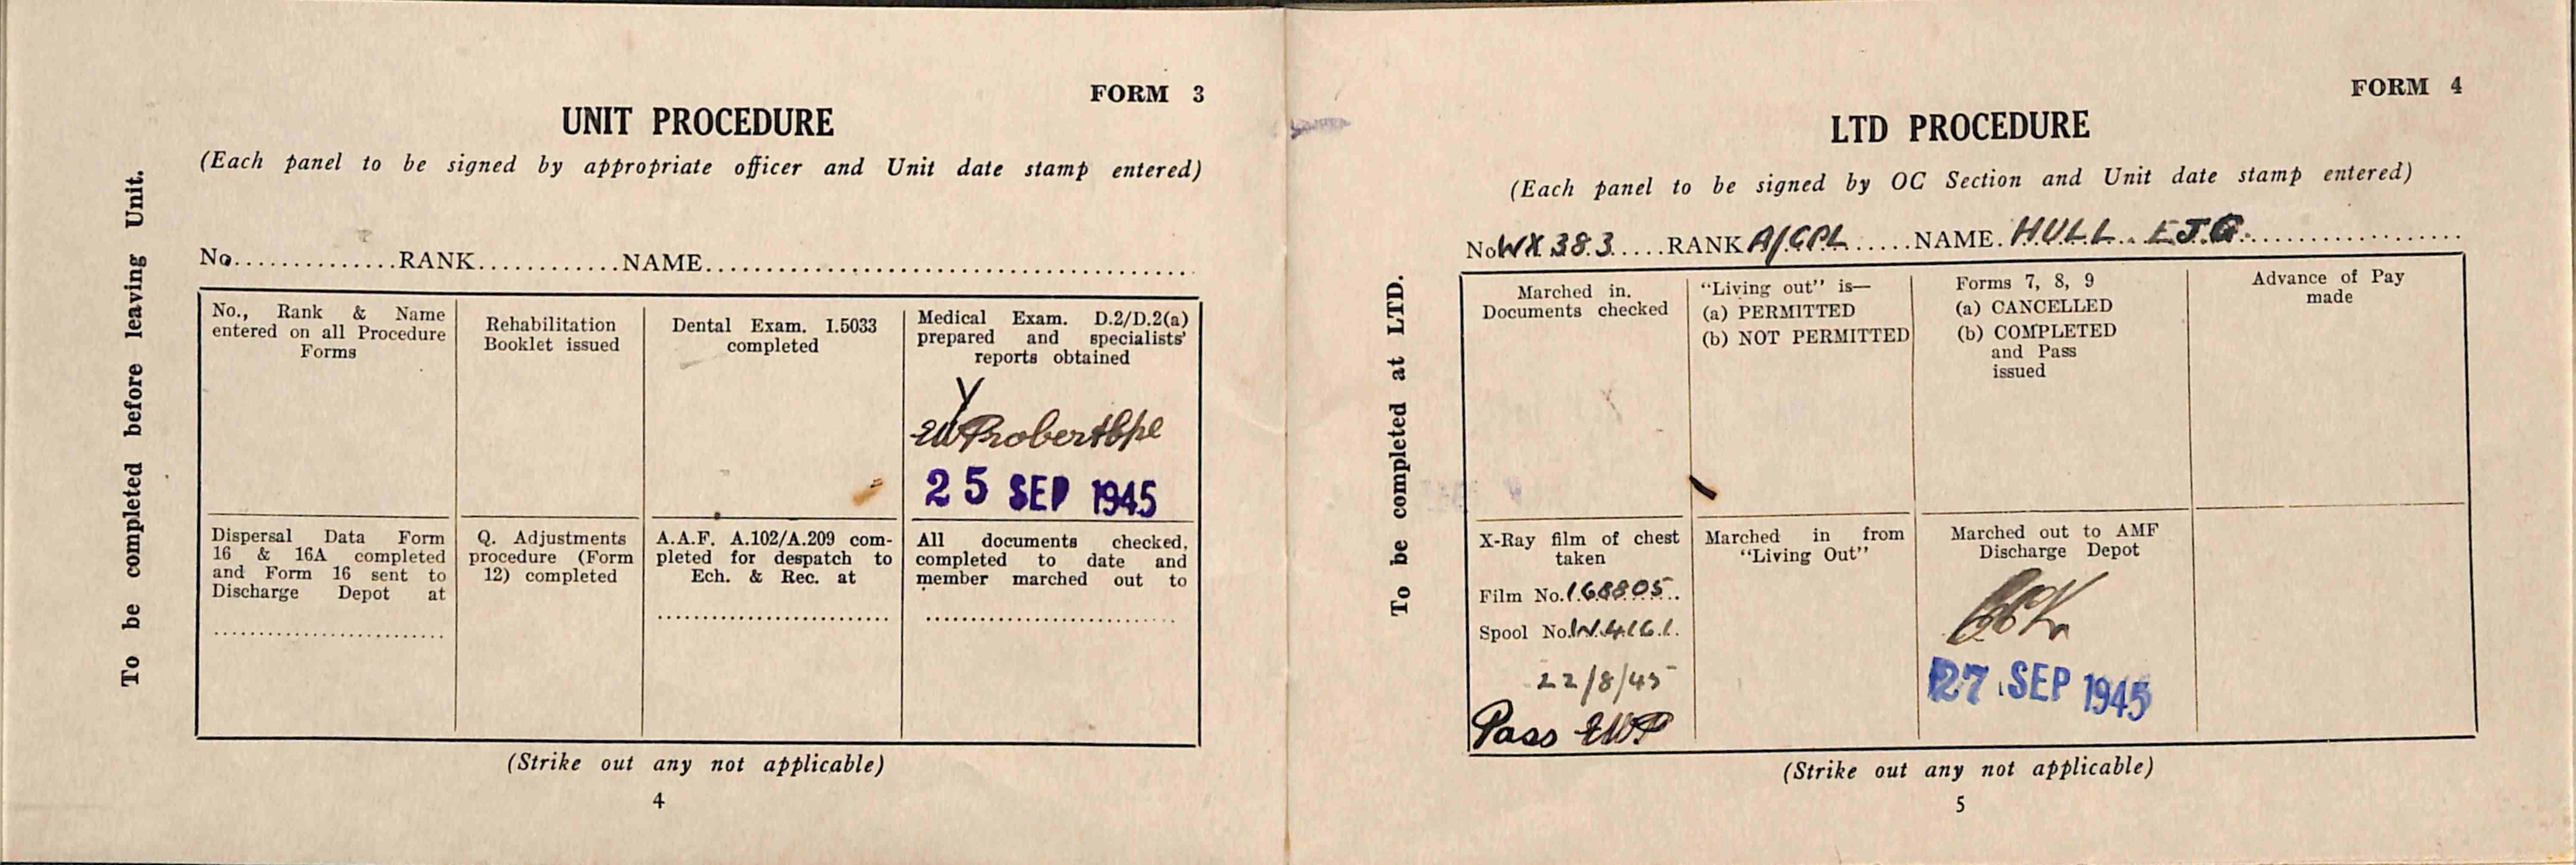 FORM 3
UNIT PROCEDURE
(Each panel to be signed by appropriate officer and Unit date stamp entered)
To be completed before leaving Unit.
No...............RANK............NAME..........................................
No., Rank & Name
entered on all Procedure
Forms
Rehabilitation
Booklet issued
Dental Exam. I.5033
completed
Medical Exam. D.2/D.2(a)
prepared and specialists'
reports obtained
25 SEP 1945
Dispersal Data Form
16 & 16A completed
and Form 16 sent to
Discharge Depot at
Q. Adjustments
procedure (Form
12) completed
A.A.F. A.102/A.209 com-
pleted for despatch to
Ech. & Rec. at
All documents checked,
completed to date and
member marched out to
(Strike out any not applicable)
4
FORM 4
LTD PROCEDURE
(Each panel to be signed by OC Section and Unit date stamp entered)
To be completed at LTD.
No WX 383 RANK A/CPL NAME. HULL E.J.G.
Marched in.
Documents checked
"Living out" is—
(a) PERMITTED
(b) NOT PERMITTED
Forms 7, 8, 9
(a) CANCELLED
(b) COMPLETED
and Pass
issued
Advance of Pay
made
X-Ray film of chest
taken
Film No. 168805
Spool No. W.4161.
22/8/45
Pass EWP
Marched in from
"Living Out"
Marched out to AMF
Discharge Depot
27 SEP 1945
(Strike out any not applicable)
5